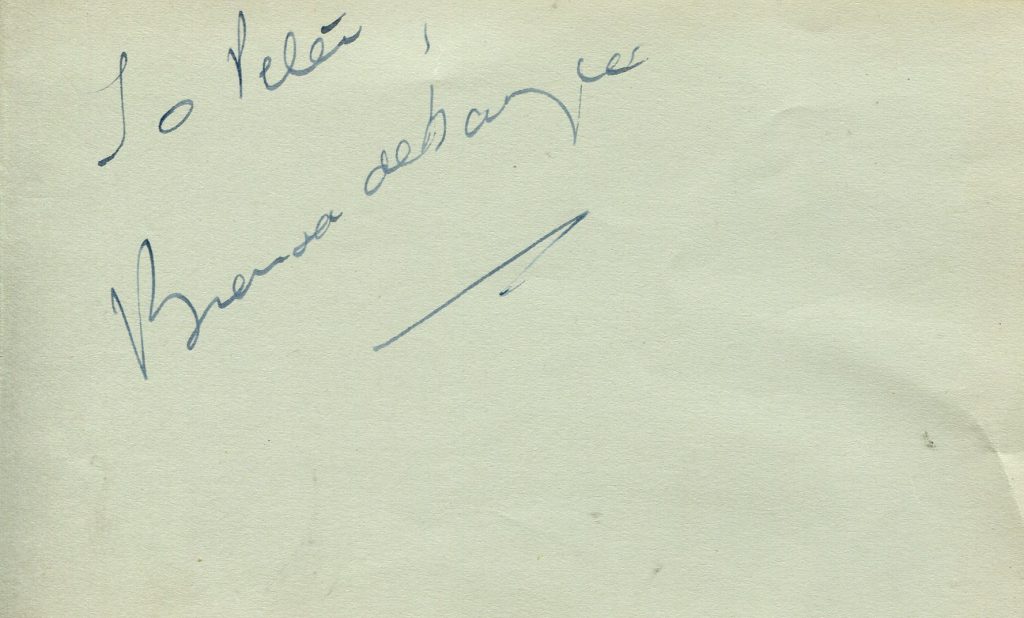 To Peter,
Brenda de Banzie